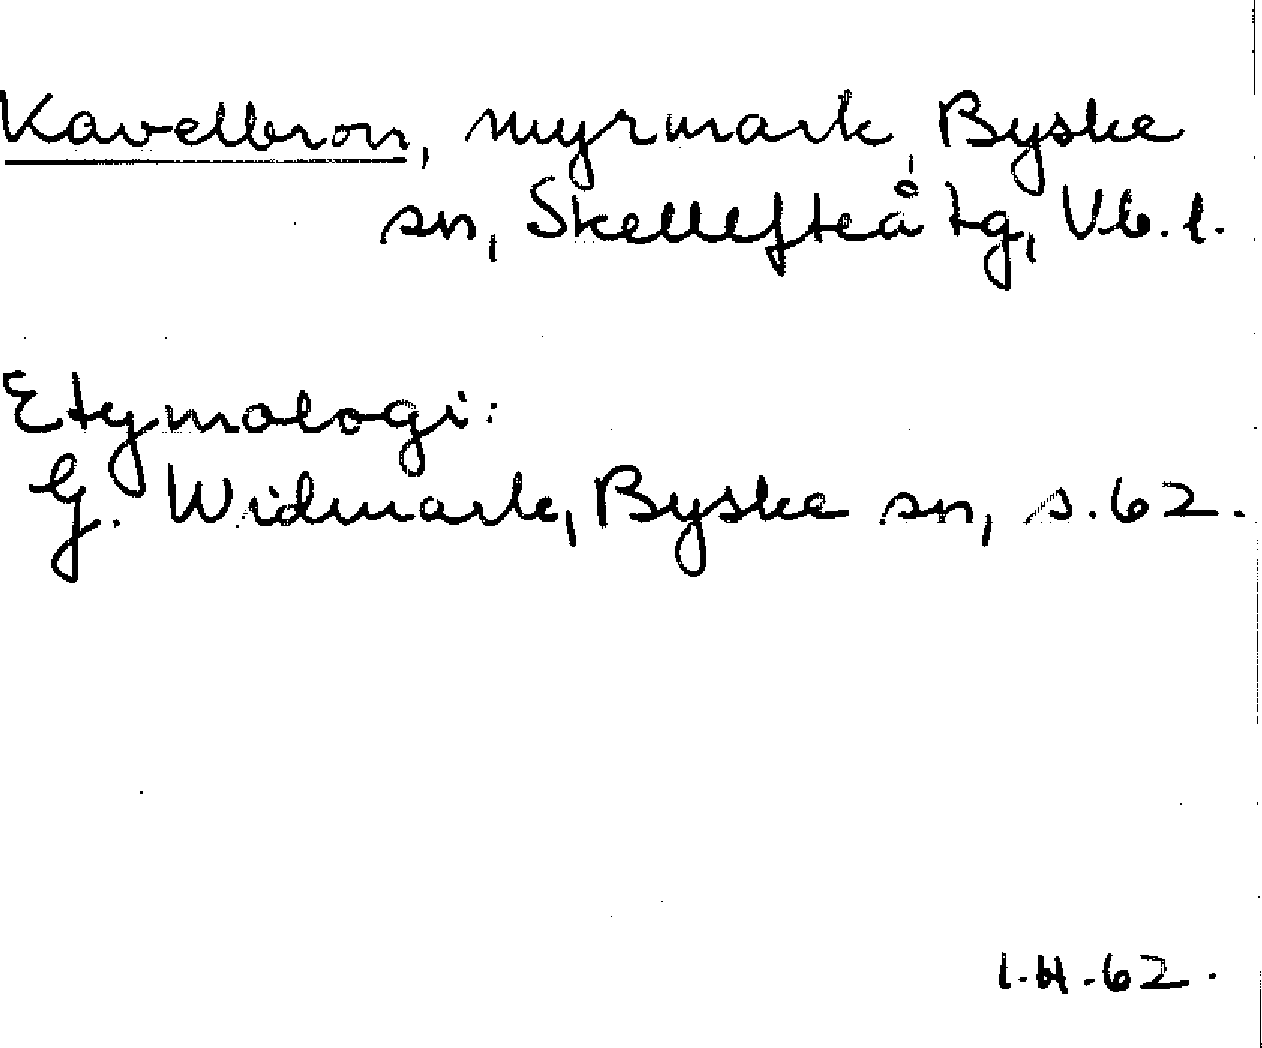 Kavelbron, myrmark, Byske
sn, Skellefteå tg, Vb. l.
Etymologi:
G. Widmark, Byske sn, s. 62.
I.H.-62.